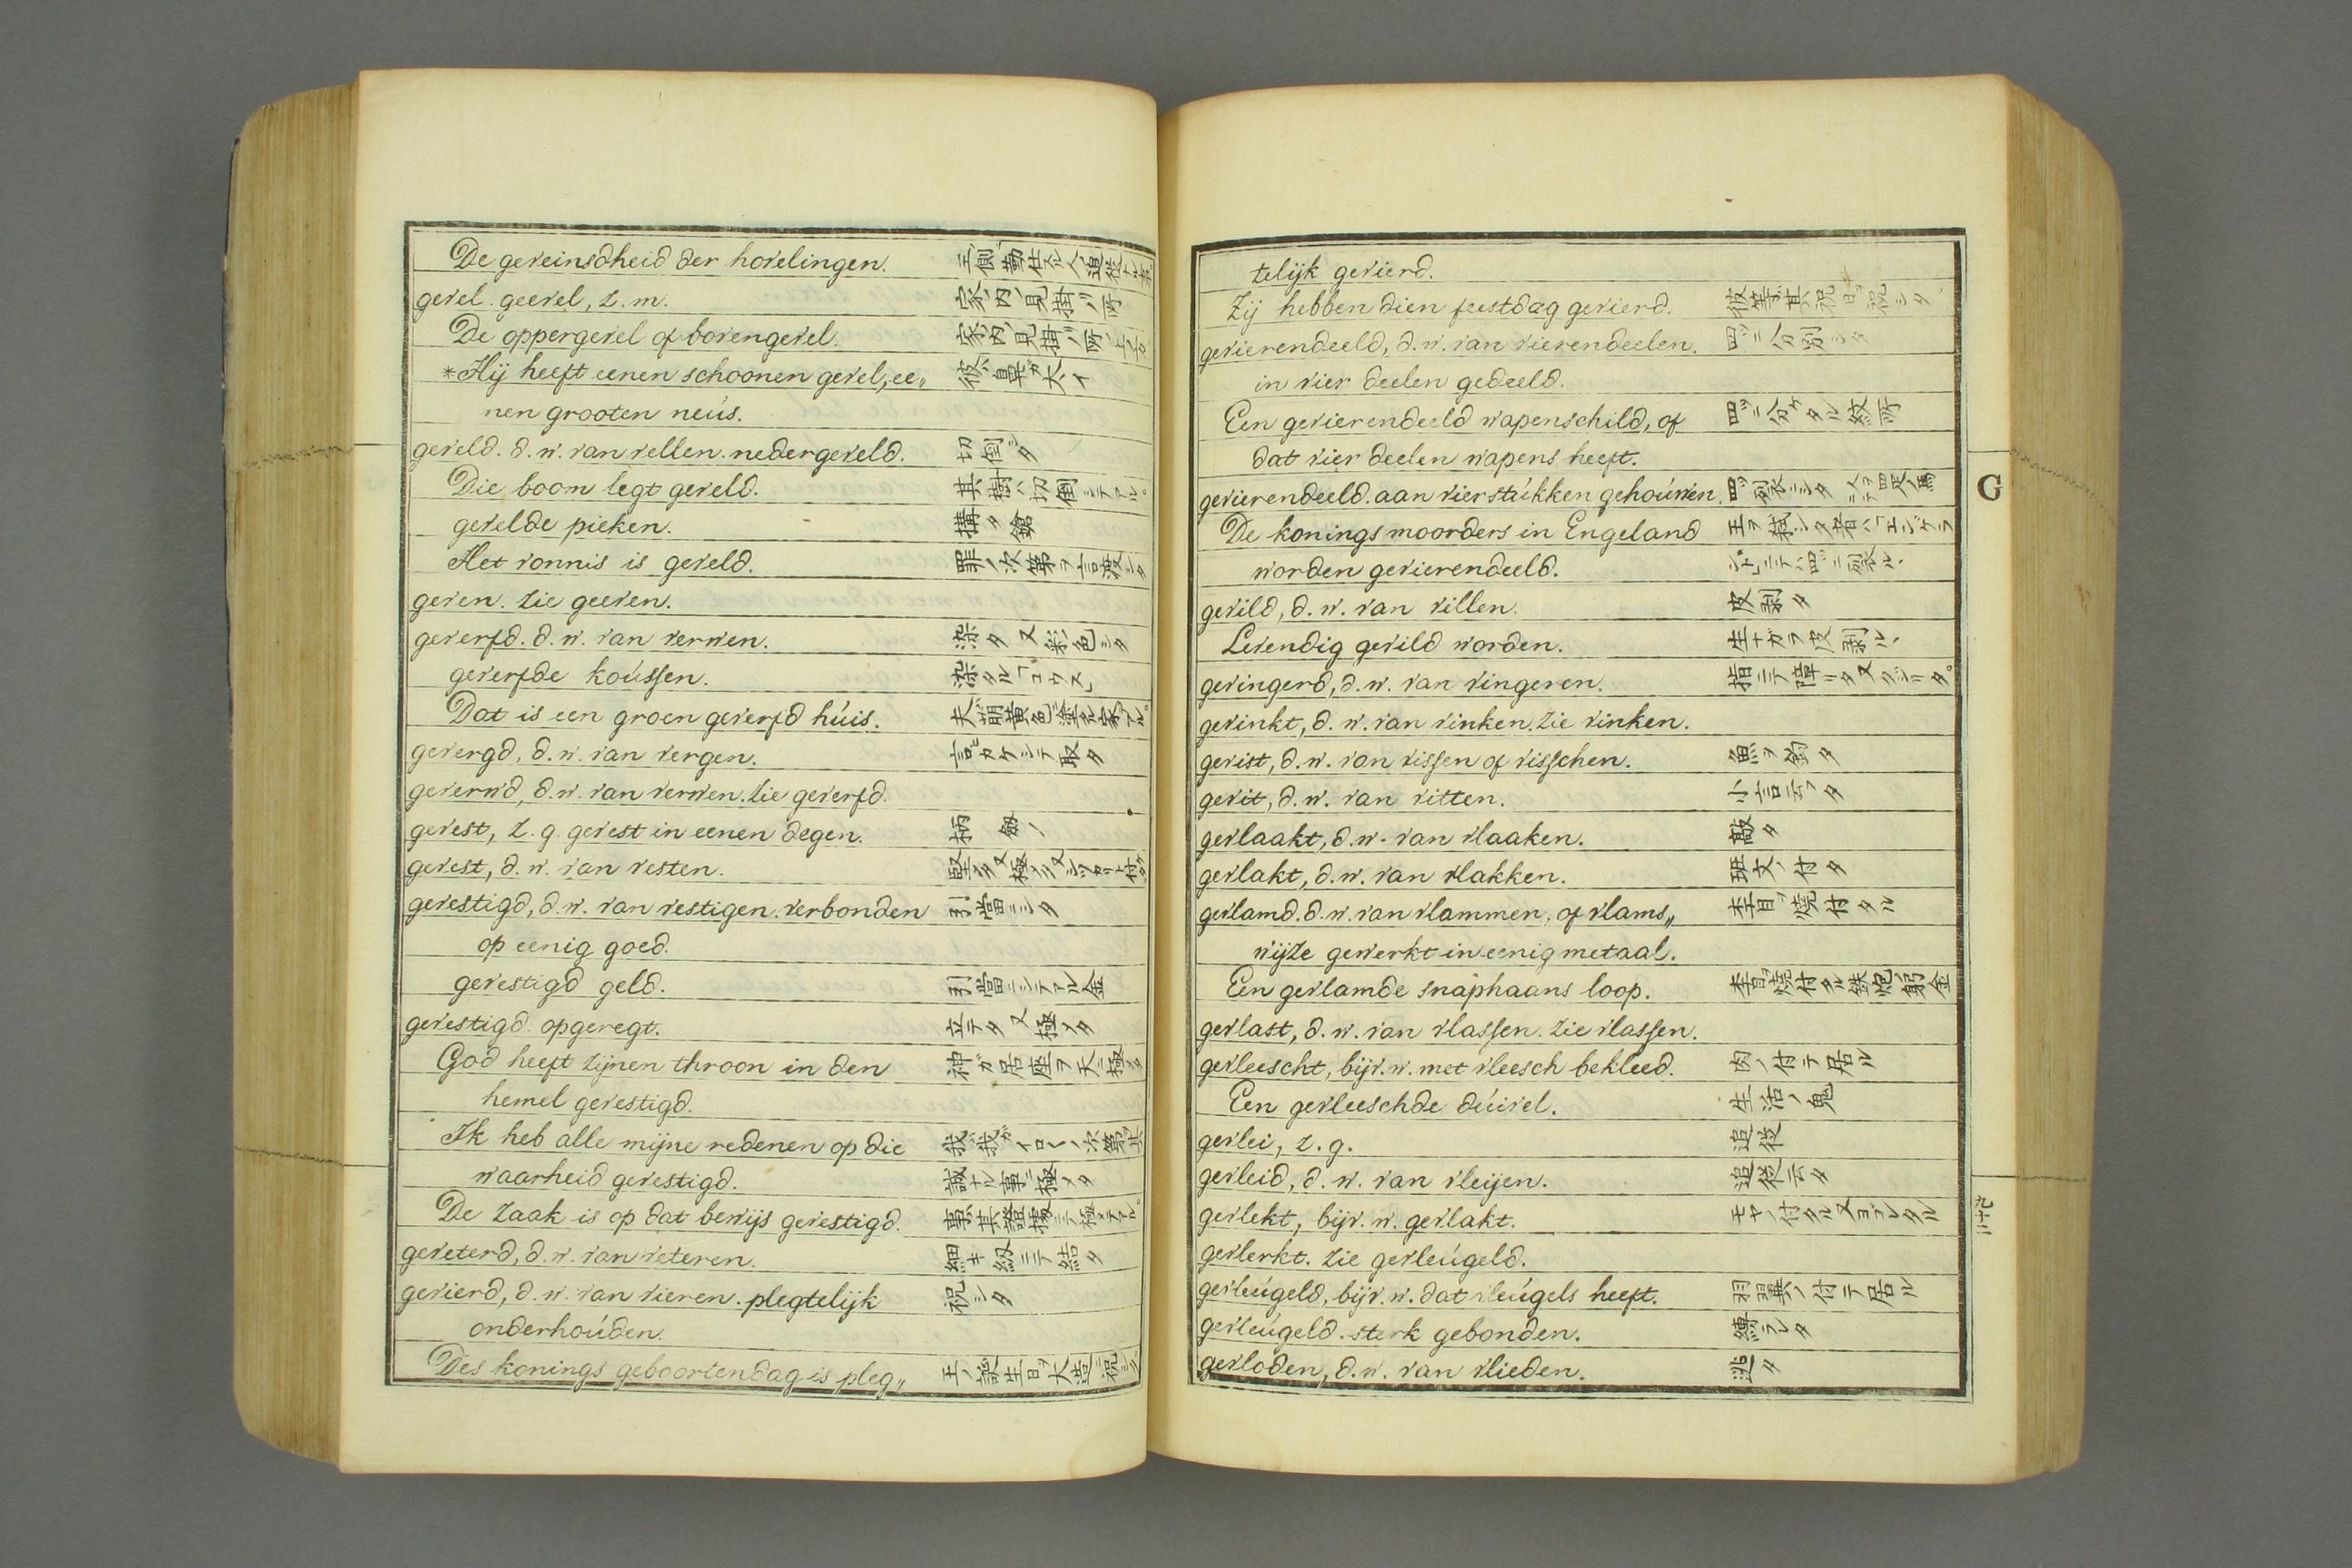 De geveinsdheid der hovelingen.
gevel. geevel, z. m. 家内ノ見掛ノ所
De oppergevel of bovengevel. 家内ノ見掛ノ所ノ上ノ方
*Hij heeft eenen schoonen gevel, ee„ 彼ハ鼻ガ大イ
nen grooten neús.
geveld. d. w. van vellen. nedergeveld. 切倒シタ
Die boom legt geveld. 其樹ハ切倒シテアル。
gevelde pieken. 構タ鎗
Het vonnis is geveld. 罪ノ次第ヲ言渡シタ
geven. zie geeven.
geverfd. d. w. van verwen. 染タ又彩色シタ
geverfde koússen. 染タル「コウス」
Dat is een groen geverfd húis.
gevergd, d. w. van vergen. 言ヒカケシテ取タ
geverwd, d. w. van verwen. zie geverfd.
gevest, z. g. gevest in eenen degen. 柄 劔ノ
gevest, d. w. van vesten.
gevestigd, d. w. van vestigen. verbonden 引當ニシタ
op eenig goed.
gevestigd geld. 引當ニシテアル金
gevestigd. opgeregt. 立テタ又極メタ
God heeft zijnen throon in den 神ガ居座ヲ天ニ極メタ
hemel gevestigd.
Ik heb alle mijne redenen op die
waarheid gevestigd. 誠ナル事ニ極メタ
De zaak is op dat bewijs gevestigd. 事ハ其證據ニテ極テアル。
geveterd, d. w. van veteren. 細キ紐ニテ結タ
gevierd, d. w. van vieren. plegtelijk 祝シタ
onderhoúden.
Des konings geboortendag is pleg„ 王ノ誕生日ヲ大造ニ祝シタ。
telijk gevierd.
Zij hebben dien feestdag gevierd. 彼等ガ其祝日ヲ祝シタ。
gevierendeeld, d. w. van vierendeelen. 四ツニ分割シタ
in vier deelen gedeeld.
Een gevierendeeld wapenschild, of 四ツニ分ケタル紋所
dat vier deelen wapens heeft.
gevierendeeld. aan vier stúkken gehoúwen.
De konings moorders in Engeland 王ヲ弑シタ者ハ「エンゲラ
worden gevierendeeld. ント」ニテハ四ツニ裂ルヽ
gevild, d. w. van villen. 皮剥タ
Levendig gevild worden. 生ナガラ皮剥ルヽ
gevingerd, d. w. van vingeren.
gevinkt, d. w. van vinken. zie vinken.
gevist, d. w. van vissen of visschen. 魚ヲ釣タ
gevit, d. w. van vitten. 小言云フタ
gevlaakt, d. w. van vlaaken. 敲タ
gevlakt, d. w. van vlakken. 斑文ノ付タ
gevlamd. d. w. van vlammen, of vlams„ 杢目ヲ燒付タル
wijze gewerkt in eenig metaal.
Een gevlamde snaphaans loop. 杢目ヲ燒付タル鉄炮ノ筒金
gevlast, d. w. van vlassen. zie vlassen.
gevleescht, bijv. w. met vleesch bekleed. 肉ノ付テ居ル
Een gevleeschde dúivel. 生活ノ鬼
gevlei, z. g. 追従
gevleid, d. w. van vleijen. 追従云タ
gevlekt, bijv. w. gevlakt. モヤノ付タル又ヨゴレタル
gevlerkt. zie gevleúgeld.
gevleúgeld, bijv. w. dat vleúgels heeft. 羽翼ノ付テ居ル
gevleúgeld. sterk gebonden. 縛ラレタ
gevloden, d. w. van vlieden. 逃タ
G